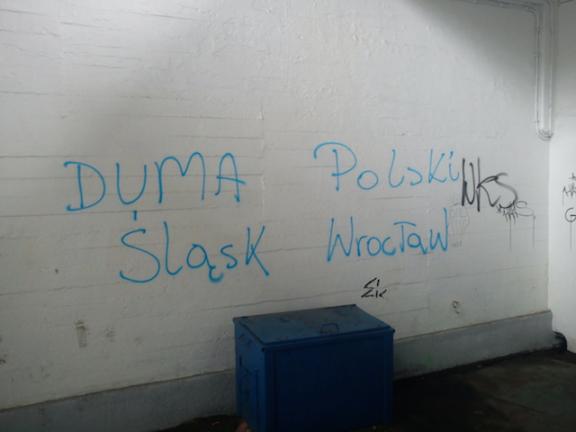 DUMA Polski
WKS
Śląsk Wrocław